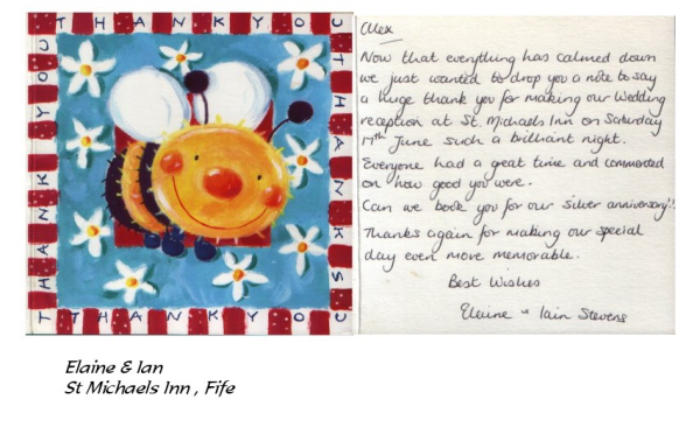 THANK YOU
THANK YOU
THANKS
THANK YOU
Alex
Now that everything has calmed down
we just wanted to drop you a note to say
a huge thank you for making our Wedding
reception at St. Michaels Inn on Saturday
17th June such a brilliant night.
Everyone had a great time and commented
on how good you were.
Can we book you for our silver anniversary!!
Thanks again for making our special
day even more memorable.
Best Wishes
Elaine & Iain Stevens
Elaine & Ian
St Michaels Inn , Fife